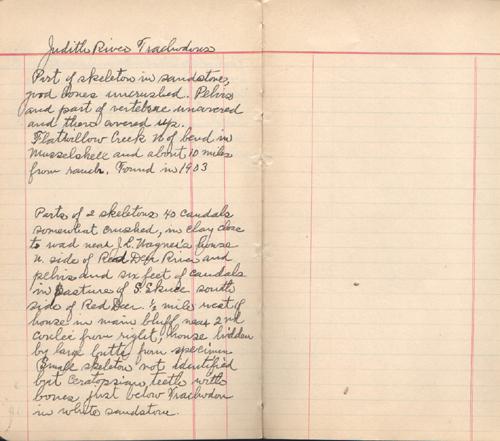 Judith River Trachodons
Part of skeleton in sandstone,
good bones uncrushed. Pelvis
and part of vertebrae uncovered
and then covered up.
Flatwillow Creek N of bend in
Musselshell and about 10 miles
from ranch. Found in 1903
Parts of 2 skeletons 40 caudals
somewhat crushed, in clay close
to road near J.L. Wagner's house
N. side of Red Deer River and
pelvis and six feet of caudals
in pasture of S. south
side of Red Deer. 1/2 mile west of
house in main bluff near 2nd
coulee from right, house hidden
by large butte from specimen
Small skeleton not identified
but Ceratopsian teeth with
bones just below Trachodon
in white sandstone.